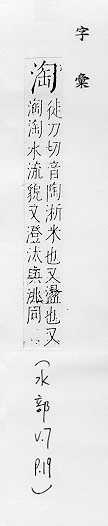 字彙
淘
徒刀切音陶淅米也又盪也又
淘淘水流貌又澄汰與洮同
(水部
V.7
P.19)